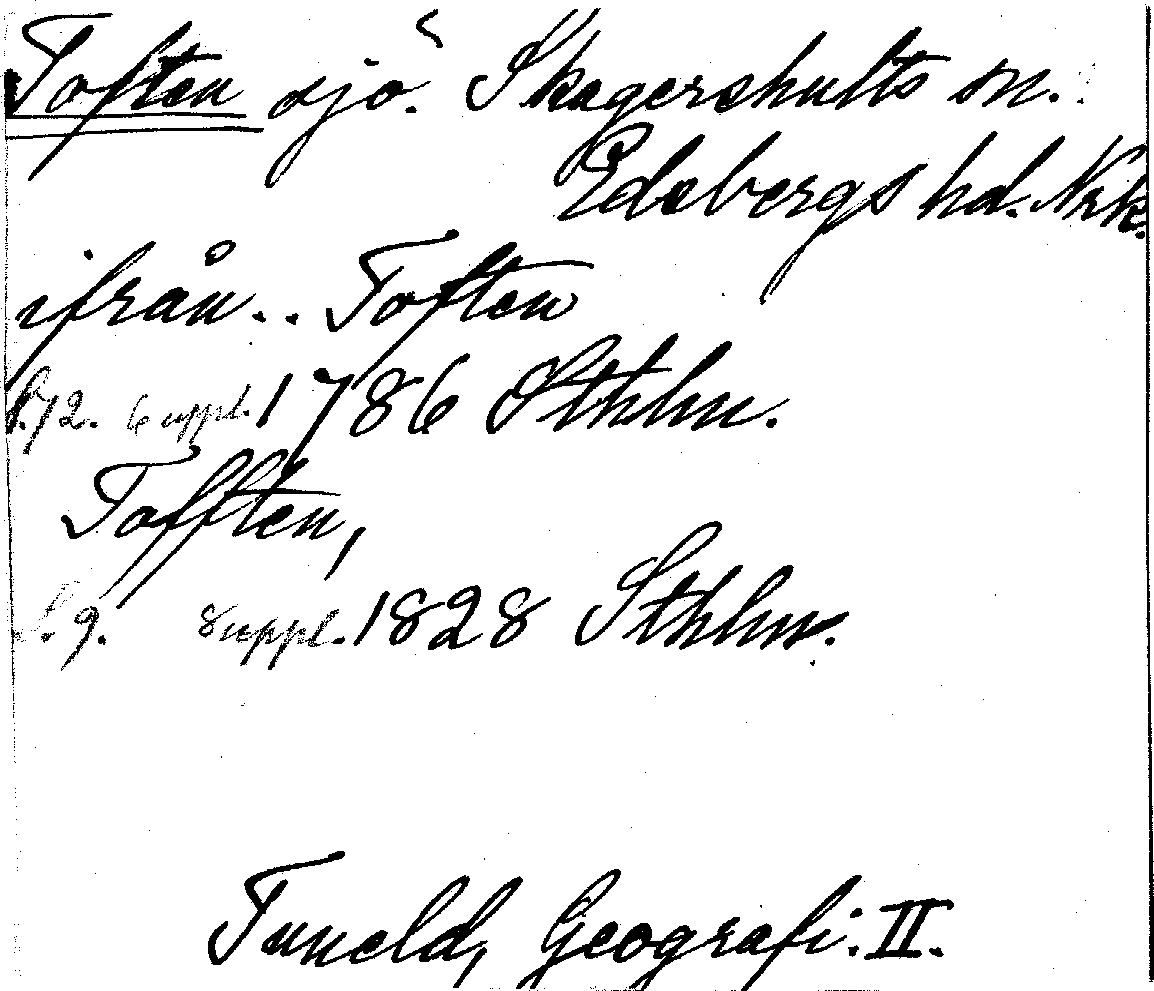 Toften sjö. Skagershults sn.
Edsbergs hd. Nrk.
ifrån.. Toften
S.72. 6 uppl. 1786 Sthlm.
Tofften,
S. 9. 8 uppl. 1828 Sthlm.
Tuneld, Geografi. II.